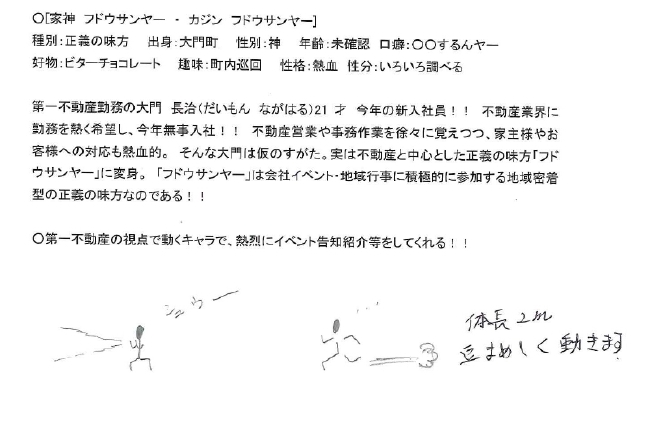 ○[家神 フドウサンヤー - カジン フドウサンヤー]
種別:正義の味方 出身:大門町 性別:神 年齢:未確認 口癖:○○するんヤー
好物:ビターチョコレート 趣味:町内巡回 性格:熱血 性分:いろいろ調べる
第一不動産勤務の大門 長治(だいもん ながはる)21 才 今年の新入社員!! 不動産業界に
勤務を熱く希望し、今年無事入社!! 不動産営業や事務作業を徐々に覚えつつ、家主様やお
客様への対応も熱血的。 そんな大門は仮のすがた。実は不動産と中心とした正義の味方「フド
ウサンヤー」に変身。「フドウサンヤー」は会社イベント・地域行事に積極的に参加する地域密着
型の正義の味方なのである!!
○第一不動産の視点で動くキャラで、熱烈にイベント告知紹介等をしてくれる!!
シュウー
体長2m
まめしく動きます